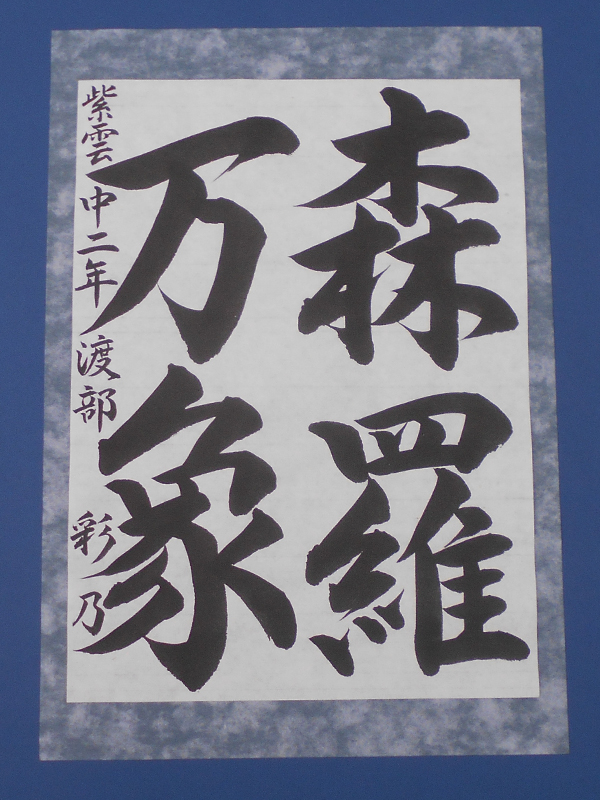 森羅
万象
紫雲中二年 渡部 彩乃